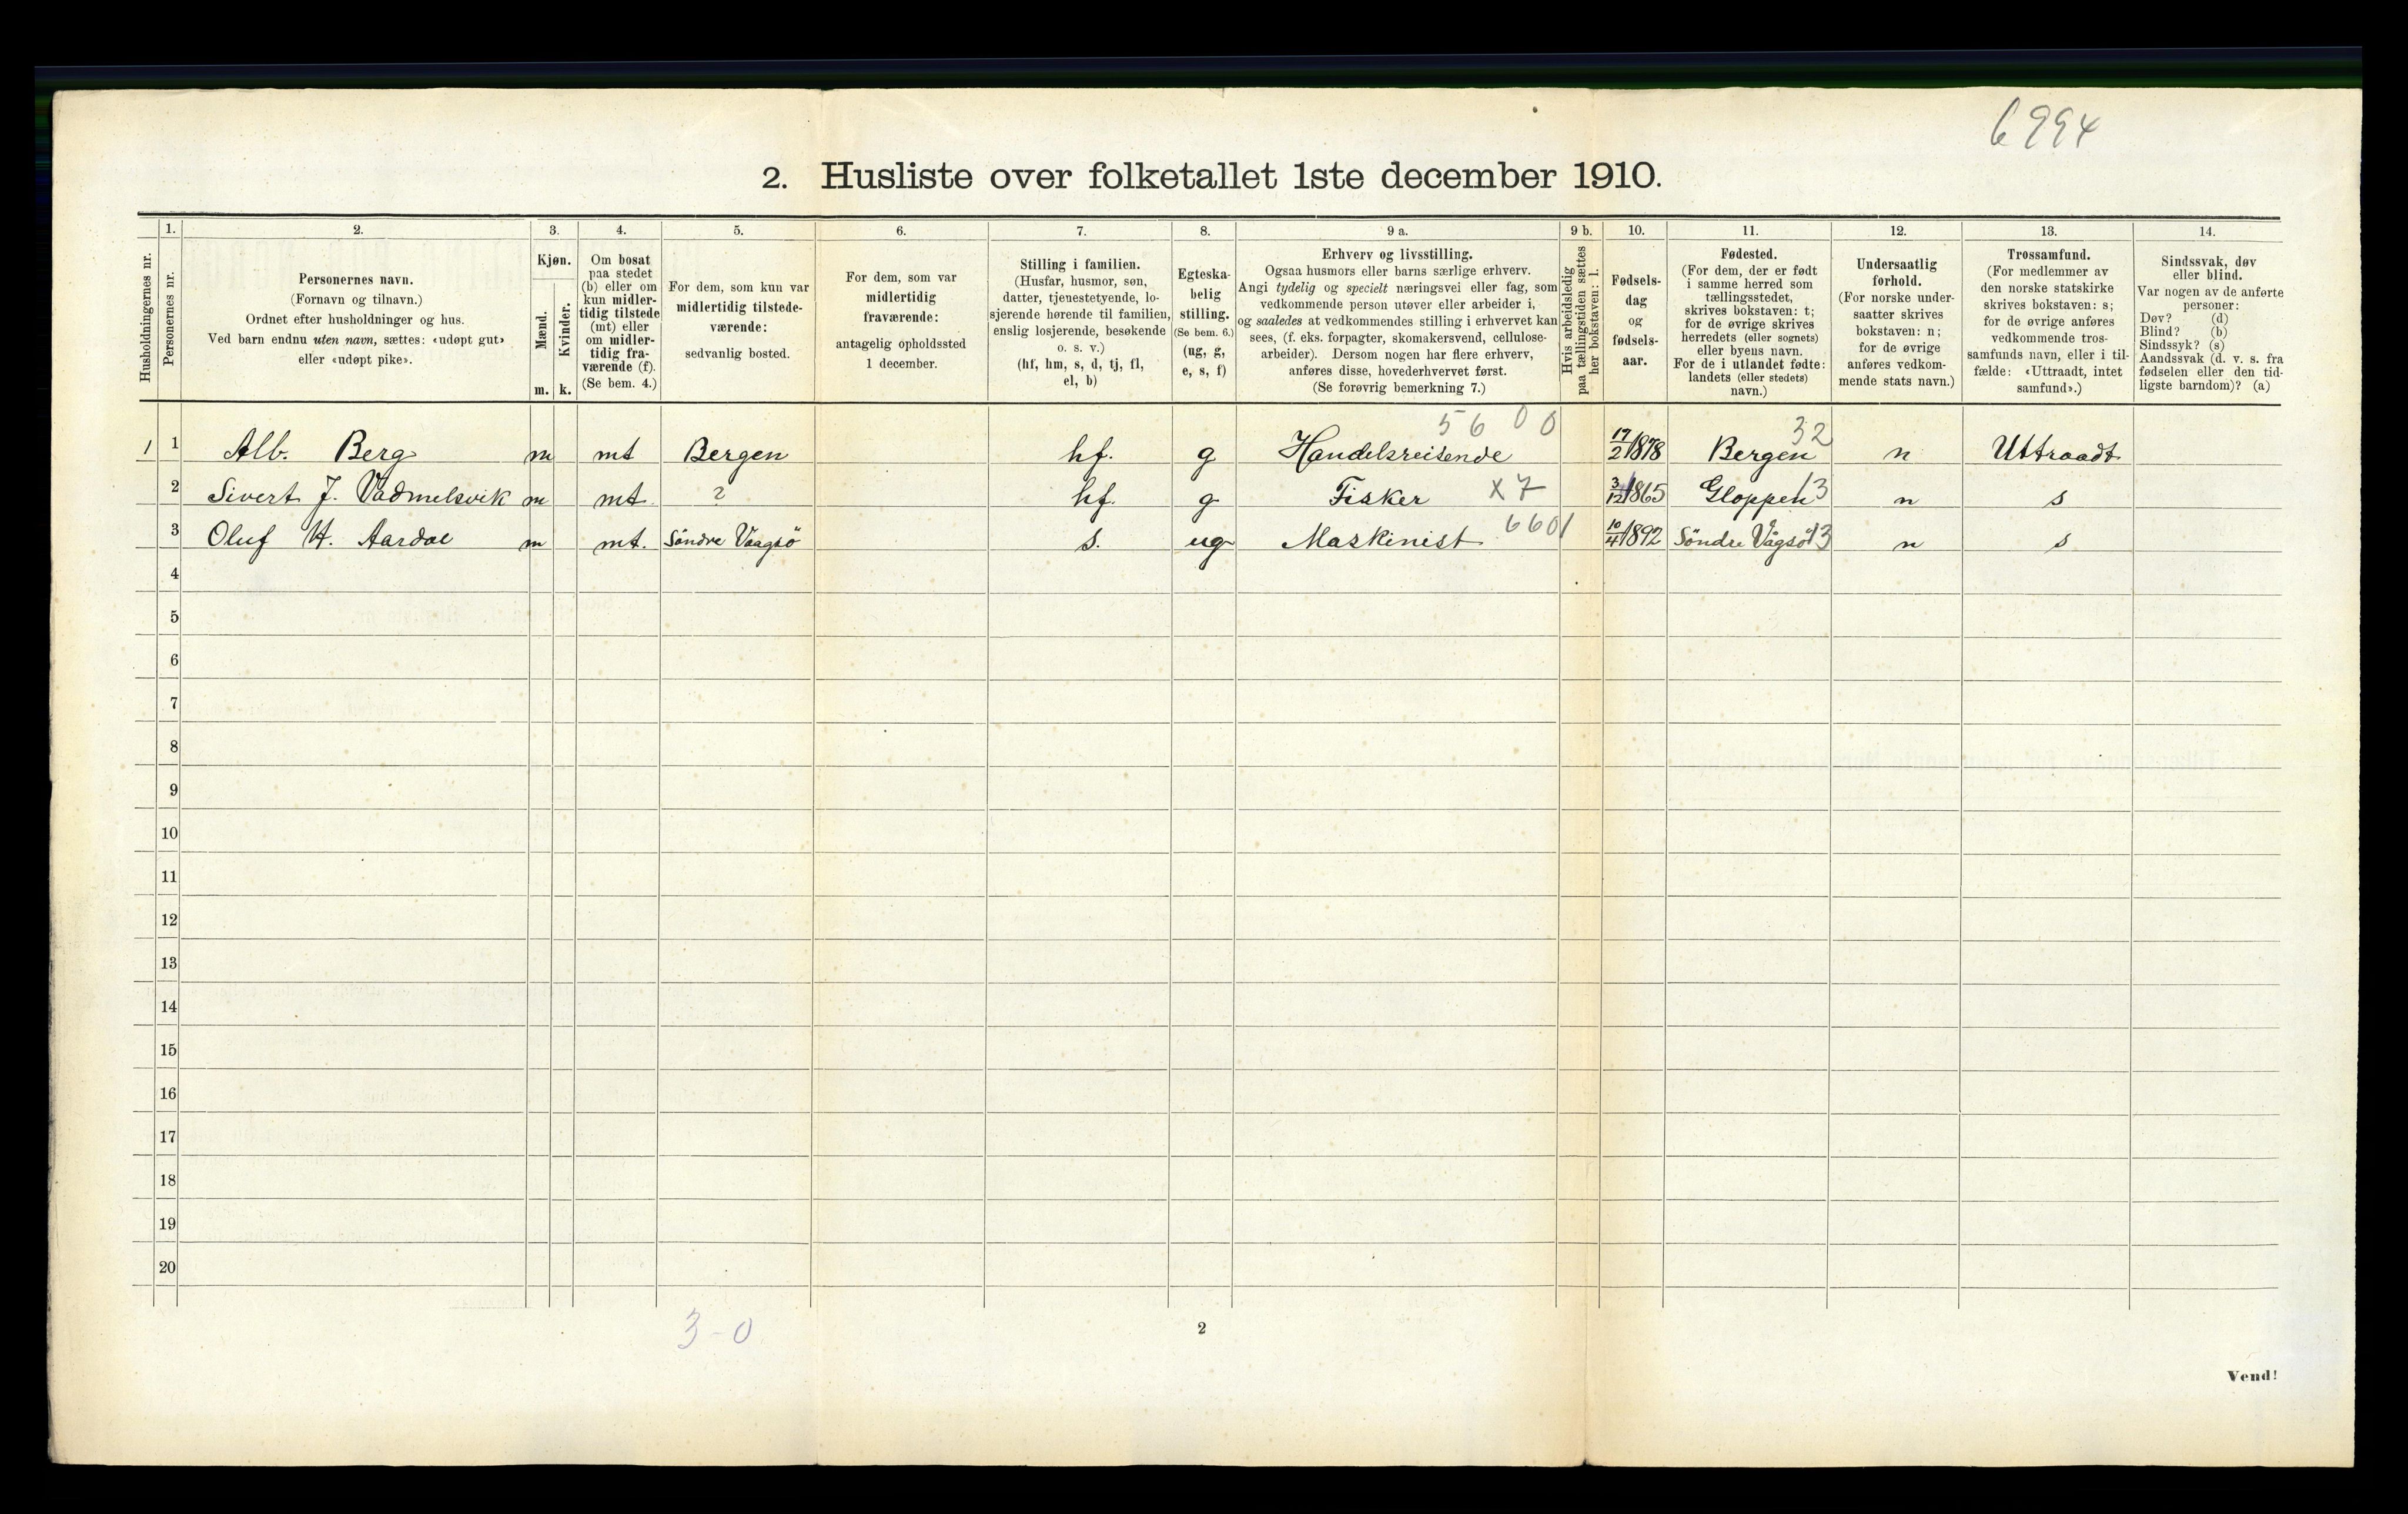 6994
2. Husliste over folketallet 1ste december 1910.
Husholdningernes nr.
1.
Personernes nr.
2.
Personernes navn.
(Fornavn og tilnavn.)
Ordnet efter husholdninger og hus.
Ved barn endnu uten navn, sættes: «udøpt gut»
eller «udøpt pike».
3.
Kjøn.
Mænd.
Kvinder.
m. k.
4.
Om bosat
paa stedet
(b) eller om
kun midler-
tidig tilstede
(mt) eller
om midler-
tidig fra-
værende (f).
(Se bem. 4.)
5.
For dem, som kun var
midlertidig tilstede-
værende:
sedvanlig bosted.
6.
For dem, som var
midlertidig
fraværende:
antagelig opholdssted
1 december.
7.
Stilling i familien.
(Husfar, husmor, søn,
datter, tjenestetyende, lo-
sjerende hørende til familien,
enslig losjerende, besøkende
o. s. v.)
(hf, hm, s, d, tj, fl,
el, b)
8.
Egteska-
belig
stilling.
(Se bem. 6.)
(ug, g,
e, s, f)
9 a.
Erhverv og livsstilling.
Ogsaa husmors eller barns særlige erhverv.
Angi tydelig og specielt næringsvei eller fag, som
vedkommende person utøver eller arbeider i,
og saaledes at vedkommendes stilling i erhvervet kan
sees, (f. eks. forpagter, skomakersvend, cellulose-
arbeider). Dersom nogen har flere erhverv,
anføres disse, hovederhvervet først.
(Se forøvrig bemerkning 7.)
9 b.
Hvis arbeidsledig
paa tællingstiden sættes
her bokstaven: l.
10.
Fødsels-
dag
og
fødsels-
aar.
11.
Fødested.
(For dem, der er født
i samme herred som
tællingsstedet,
skrives bokstaven: t;
for de øvrige skrives
herredets (eller sognets)
eller byens navn.
For de i utlandet fødte:
landets (eller stedets)
navn.)
12.
Undersaatlig
forhold.
(For norske under-
saatter skrives
bokstaven: n;
for de øvrige
anføres vedkom-
mende stats navn.)
13.
Trossamfund.
(For medlemmer av
den norske statskirke
skrives bokstaven: s;
for de øvrige anføres
vedkommende tros-
samfunds navn, eller i til-
fælde: «Uttraadt, intet
samfund».)
14.
Sindssvak, døv
eller blind.
Var nogen av de anførte
personer:
Døv? (d)
Blind? (b)
Sindssyk? (s)
Aandssvak (d. v. s. fra
fødselen eller den tid-
ligste barndom)? (a)
5600 32
1 1 Alb. Berg m mt Bergen hf. g Handelsreisende 17/2 1878 Bergen n Uttraadt
2 Sivert J. Vadmelsvik m mt ? hf. g Fisker X7 3/12 1865 Gloppen 13 n s
3 Oluf H. Aardal m mt. Söndre Vaagsö s. ug Maskinist 6601 10/4 1892 Söndre Vågsö 13 n s
4
5
6
7
8
9
10
11
12
13
14
15
16
17
18
19
20
3-0
2
Vend!